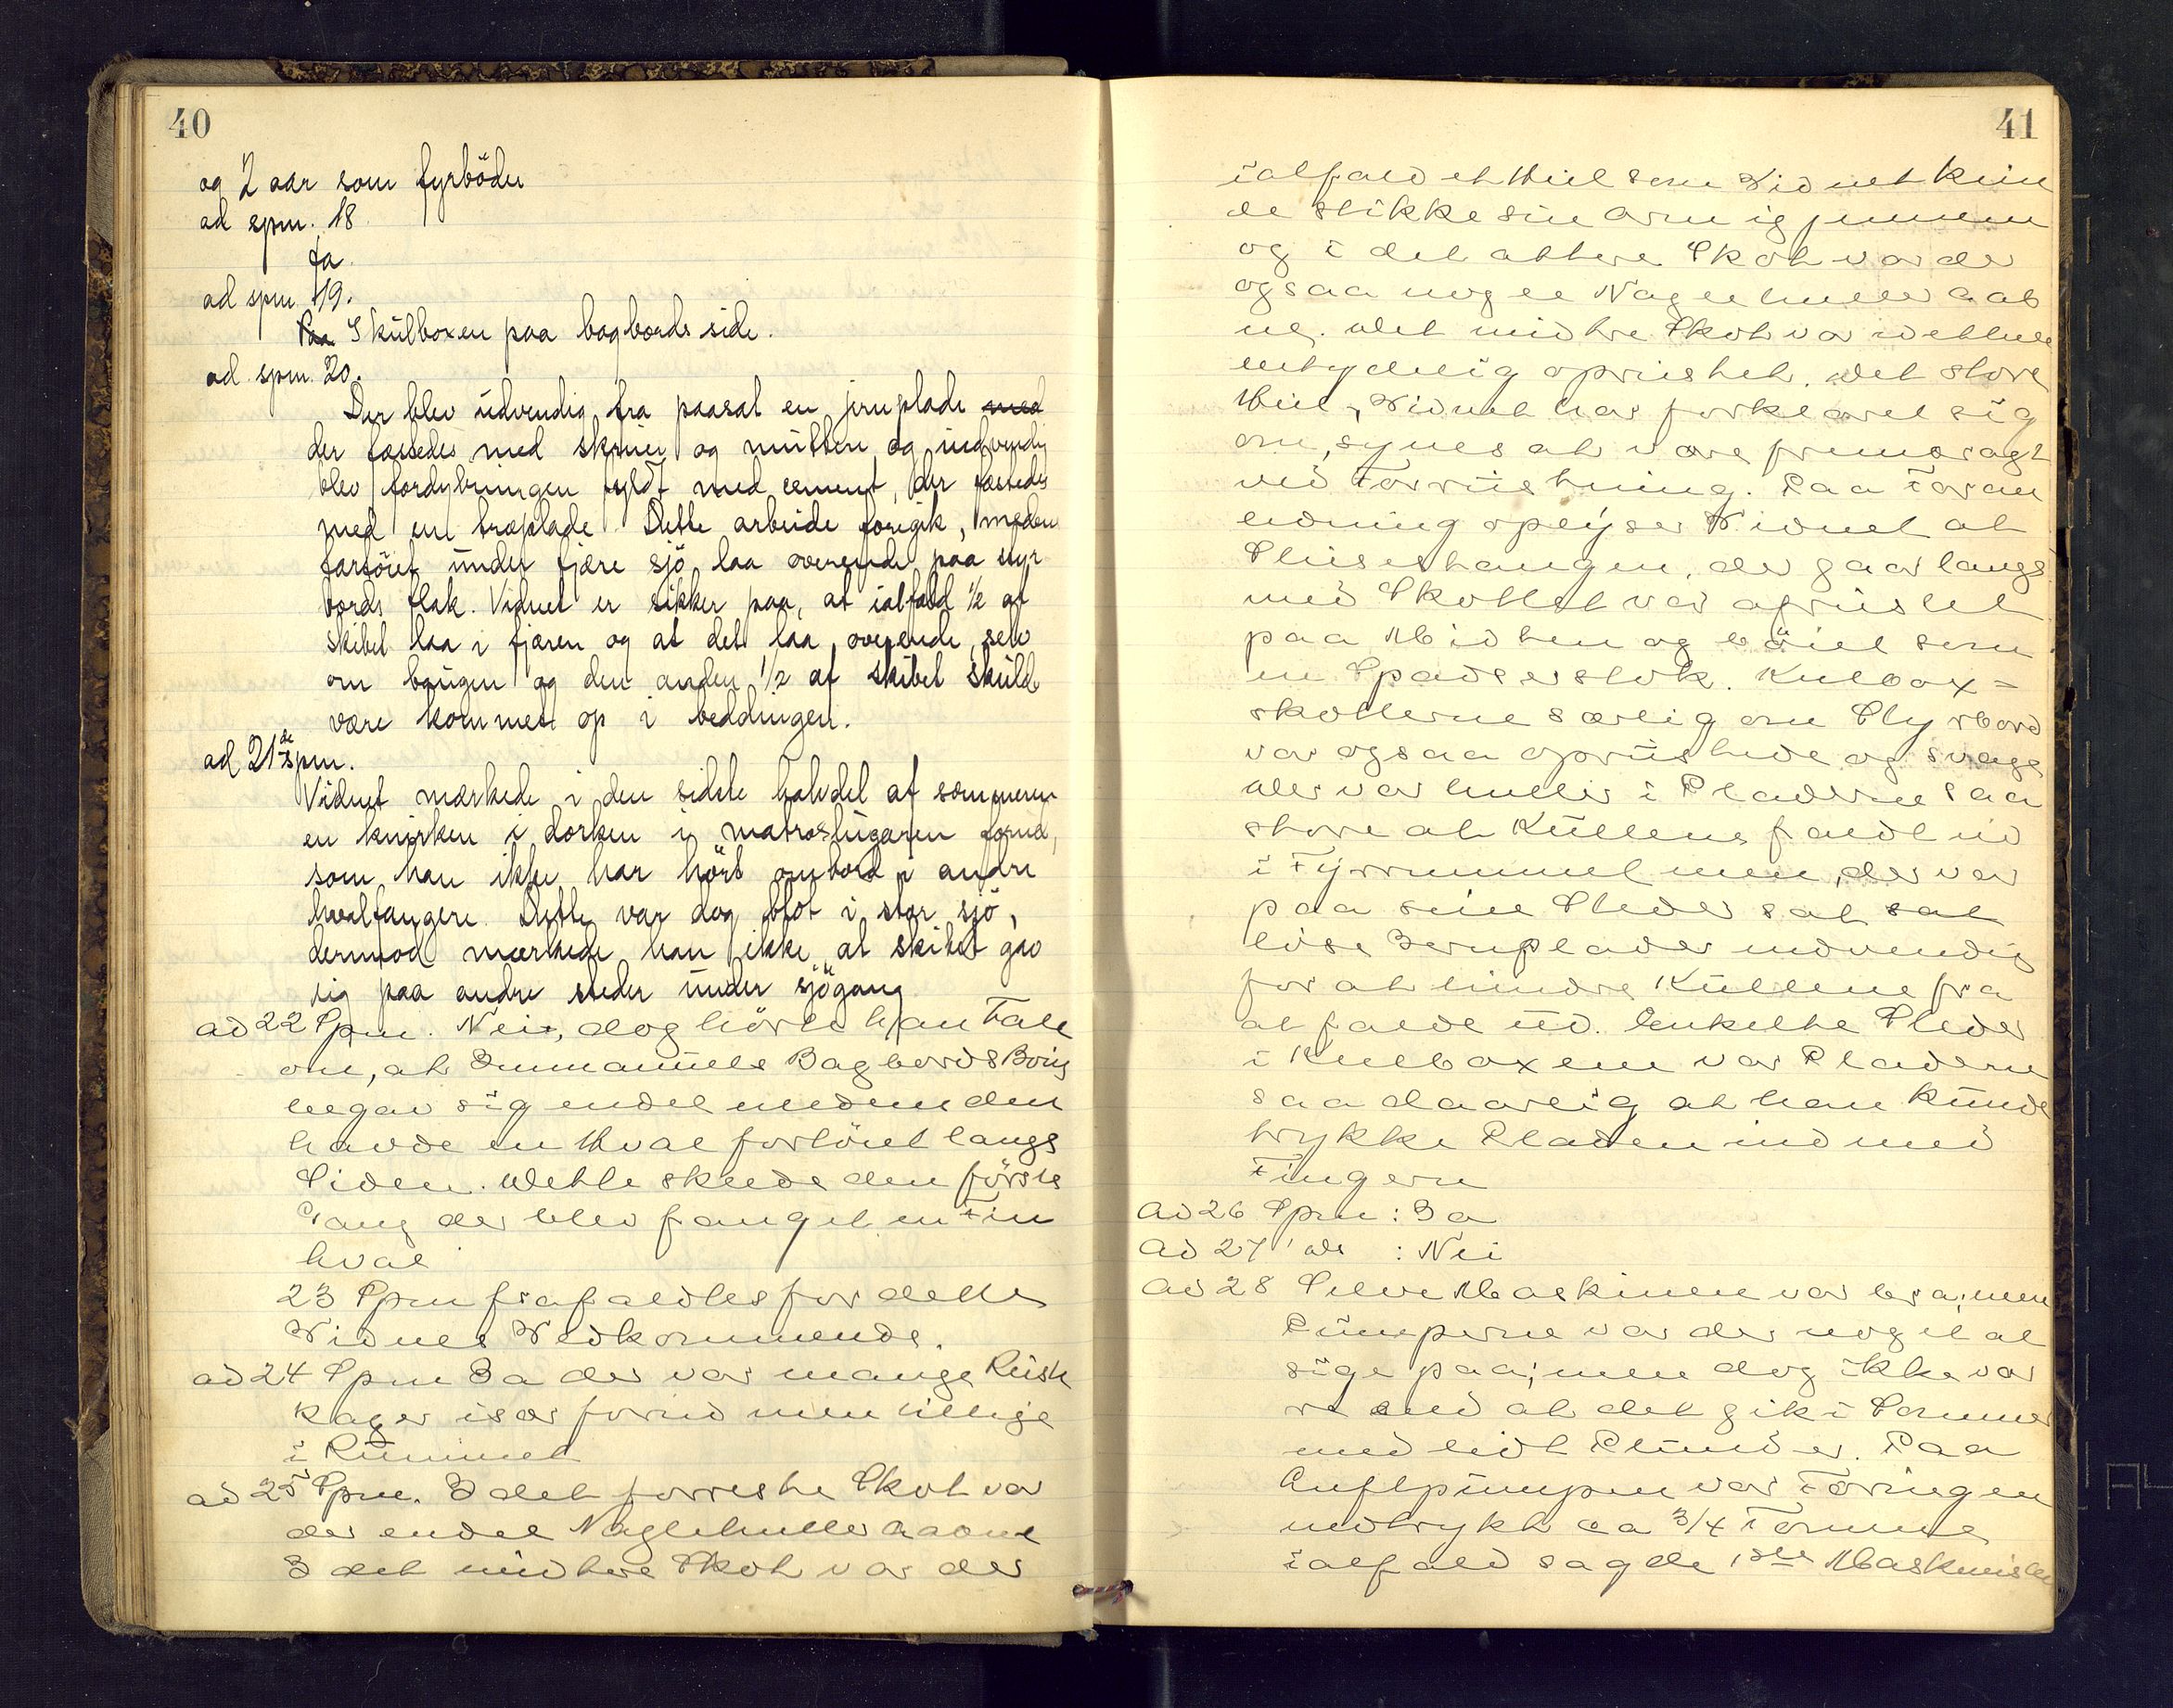 40
og 2 aar som fyrböder
ad spm. 18
Ja.
ad spm. 19.
Paa I kulboxen paa bagbords side.
ad spm. 20.
Der blev udvendig fra paasat en jernplade med
der fæstedes med skruer og muttere, og indvendig
blev fordybningen fyldt med cement, der fæstedes
med en træplade. Dette arbeide foregik, meden
fartöiet under fjære sjö laa overende paa styr
bords flak. Vidnet er sikker paa, at ialfald 1/2 af
skibet laa i fjæren og at det laa overende, selv
om bougen og den anden 1/2 af skibet skulde
være kommet op i beddingen.
ad 21de spm.
Vidnet mærkede i den sidste halvdel af sommeren
en knirken i dørken i matroslugaren forud,
som han ikke har hört ombord i andre
hvalfangere. Dette var dog blot i stor sjö,
derimod mærkede han ikke at skibet gav
sig paa andre steder under sjögang
ad 22 Spm. Nei, dog hörte han Tale
om, at Emmanuels Bagbords Boug
begav sig endel medens den
havde en Hval fortöiet langs
Siden. Dette skede den förste
Gang der blev fanget en Fin
hval
23 Spm frafaldtes for dette
Vidnes Vedkommende.
ad 24 Spm Ja der var mange Rust
kager især forud men tillige
i Rummet
ad 25 Spm. I det forreste Skot var
der endel Naglehuller aabne
I det midtre Skot var der
41
ialfald et Hul som Vidnet kun
de stikke sin Arm igjennem
og i det aktere Skot var der
ogsaa nogle Naglehuller aab
ne. Det midtre Skot var idethele
betydelig oprustet. Det store
Hul, Vidnet har forklaret sig
om, synes at være frembragt
ved Forrustning. Paa Foran
ledning oplyser Vidnet at
Stusestangen, der gaar langs
med Skottet var afrustet
paa Midten og böiet som
en Spadserstok. Kulbox=
skotterne særlig om Styrbord
var ogsaa oprustede og svage
der var huller i Pladerne saa
store at Kullene faldt ud
i Fyrrummet men, der var
paa sine Steder sat sat
löse Jernplader indvendig
for at hindre Kullene fra
at falde ud. Enkelte Steder
i Kulboxene var Pladerne
saa daarlig at han kunde
trykke Pladen ind med
Fingern
Ad 26 Spm : Ja
Ad 27 do : Nei
Ad 28 Selve Maskinen var bra; men
Pumperne var der noget at
sige paa; men dog ikke vær
re end at det gik i Sommer
med lidt Plunder. Paa
Luftpumpen var Foringen
indtrykt ca 3/4 Tomme
ialfald sagde 1ste Maskinisten